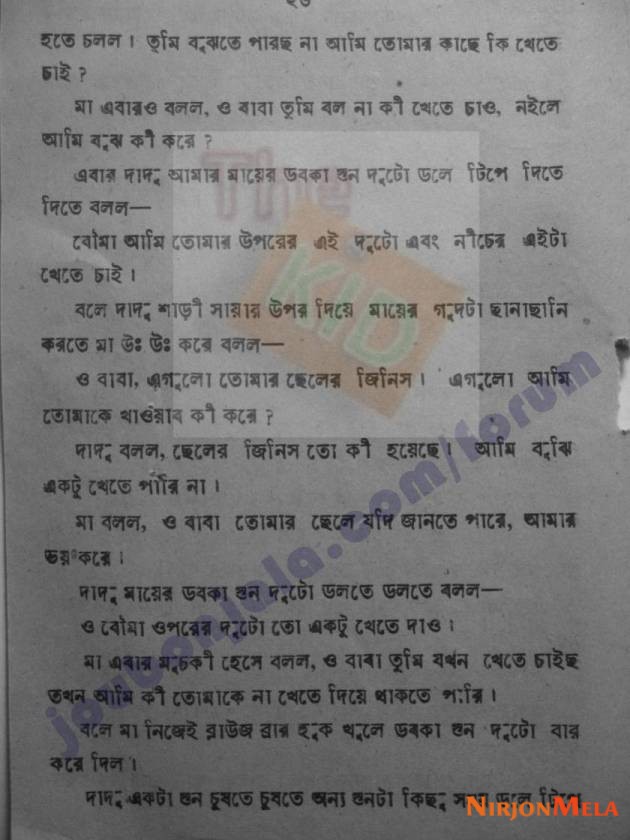 হতে চলল। তুমি বুঝতে পারছ না আমি তোমার কাছে কি খেতে
চাই?
মা এবারও বলল, ও বাবা তুমি বল না কী খেতে চাও, নইলে
আমি বুঝ কী করে?
এবার দাদু আমার মায়ের ডবকা স্তন দুটো ডলে টিপে দিতে
দিতে বলল—
বৌমা আমি তোমার উপরের এই দুটো এবং নীচের এইটা
খেতে চাই।
বলে দাদু শাড়ী সায়ার উপর দিয়ে মায়ের গুদটা ছানাছানি
করতে মা উঃ উঃ করে বলল—
ও বাবা, এগুলো তোমার ছেলের জিনিস। এগুলো আমি
তোমাকে খাওয়াব কী করে?
দাদু বলল, ছেলের জিনিস তো কী হয়েছে। আমি বুঝি
একটু খেতে পারি না।
মা বলল, ও বাবা তোমার ছেলে যদি জানতে পারে, আমার
ভয় করে।
দাদু মায়ের ডবকা স্তন দুটো ডলতে ডলতে বলল—
ও বৌমা ওপরের দুটো তো একটু খেতে দাও।
মা এবার মুচকী হেসে বলল, ও বাবা তুমি যখন খেতে চাইছ
তখন আমি কী তোমাকে না খেতে দিয়ে থাকতে পারি।
বলে মা নিজেই ব্লাউজ ব্রার হুক খুলে ডবকা স্তন দুটো বার
করে দিল।
দাদু একটা স্তন চুষতে চুষতে অন্য স্তনটা কিছু সময় ডলে টিপে
The
KID
joubonjala.com/forum
NIRJONMELA